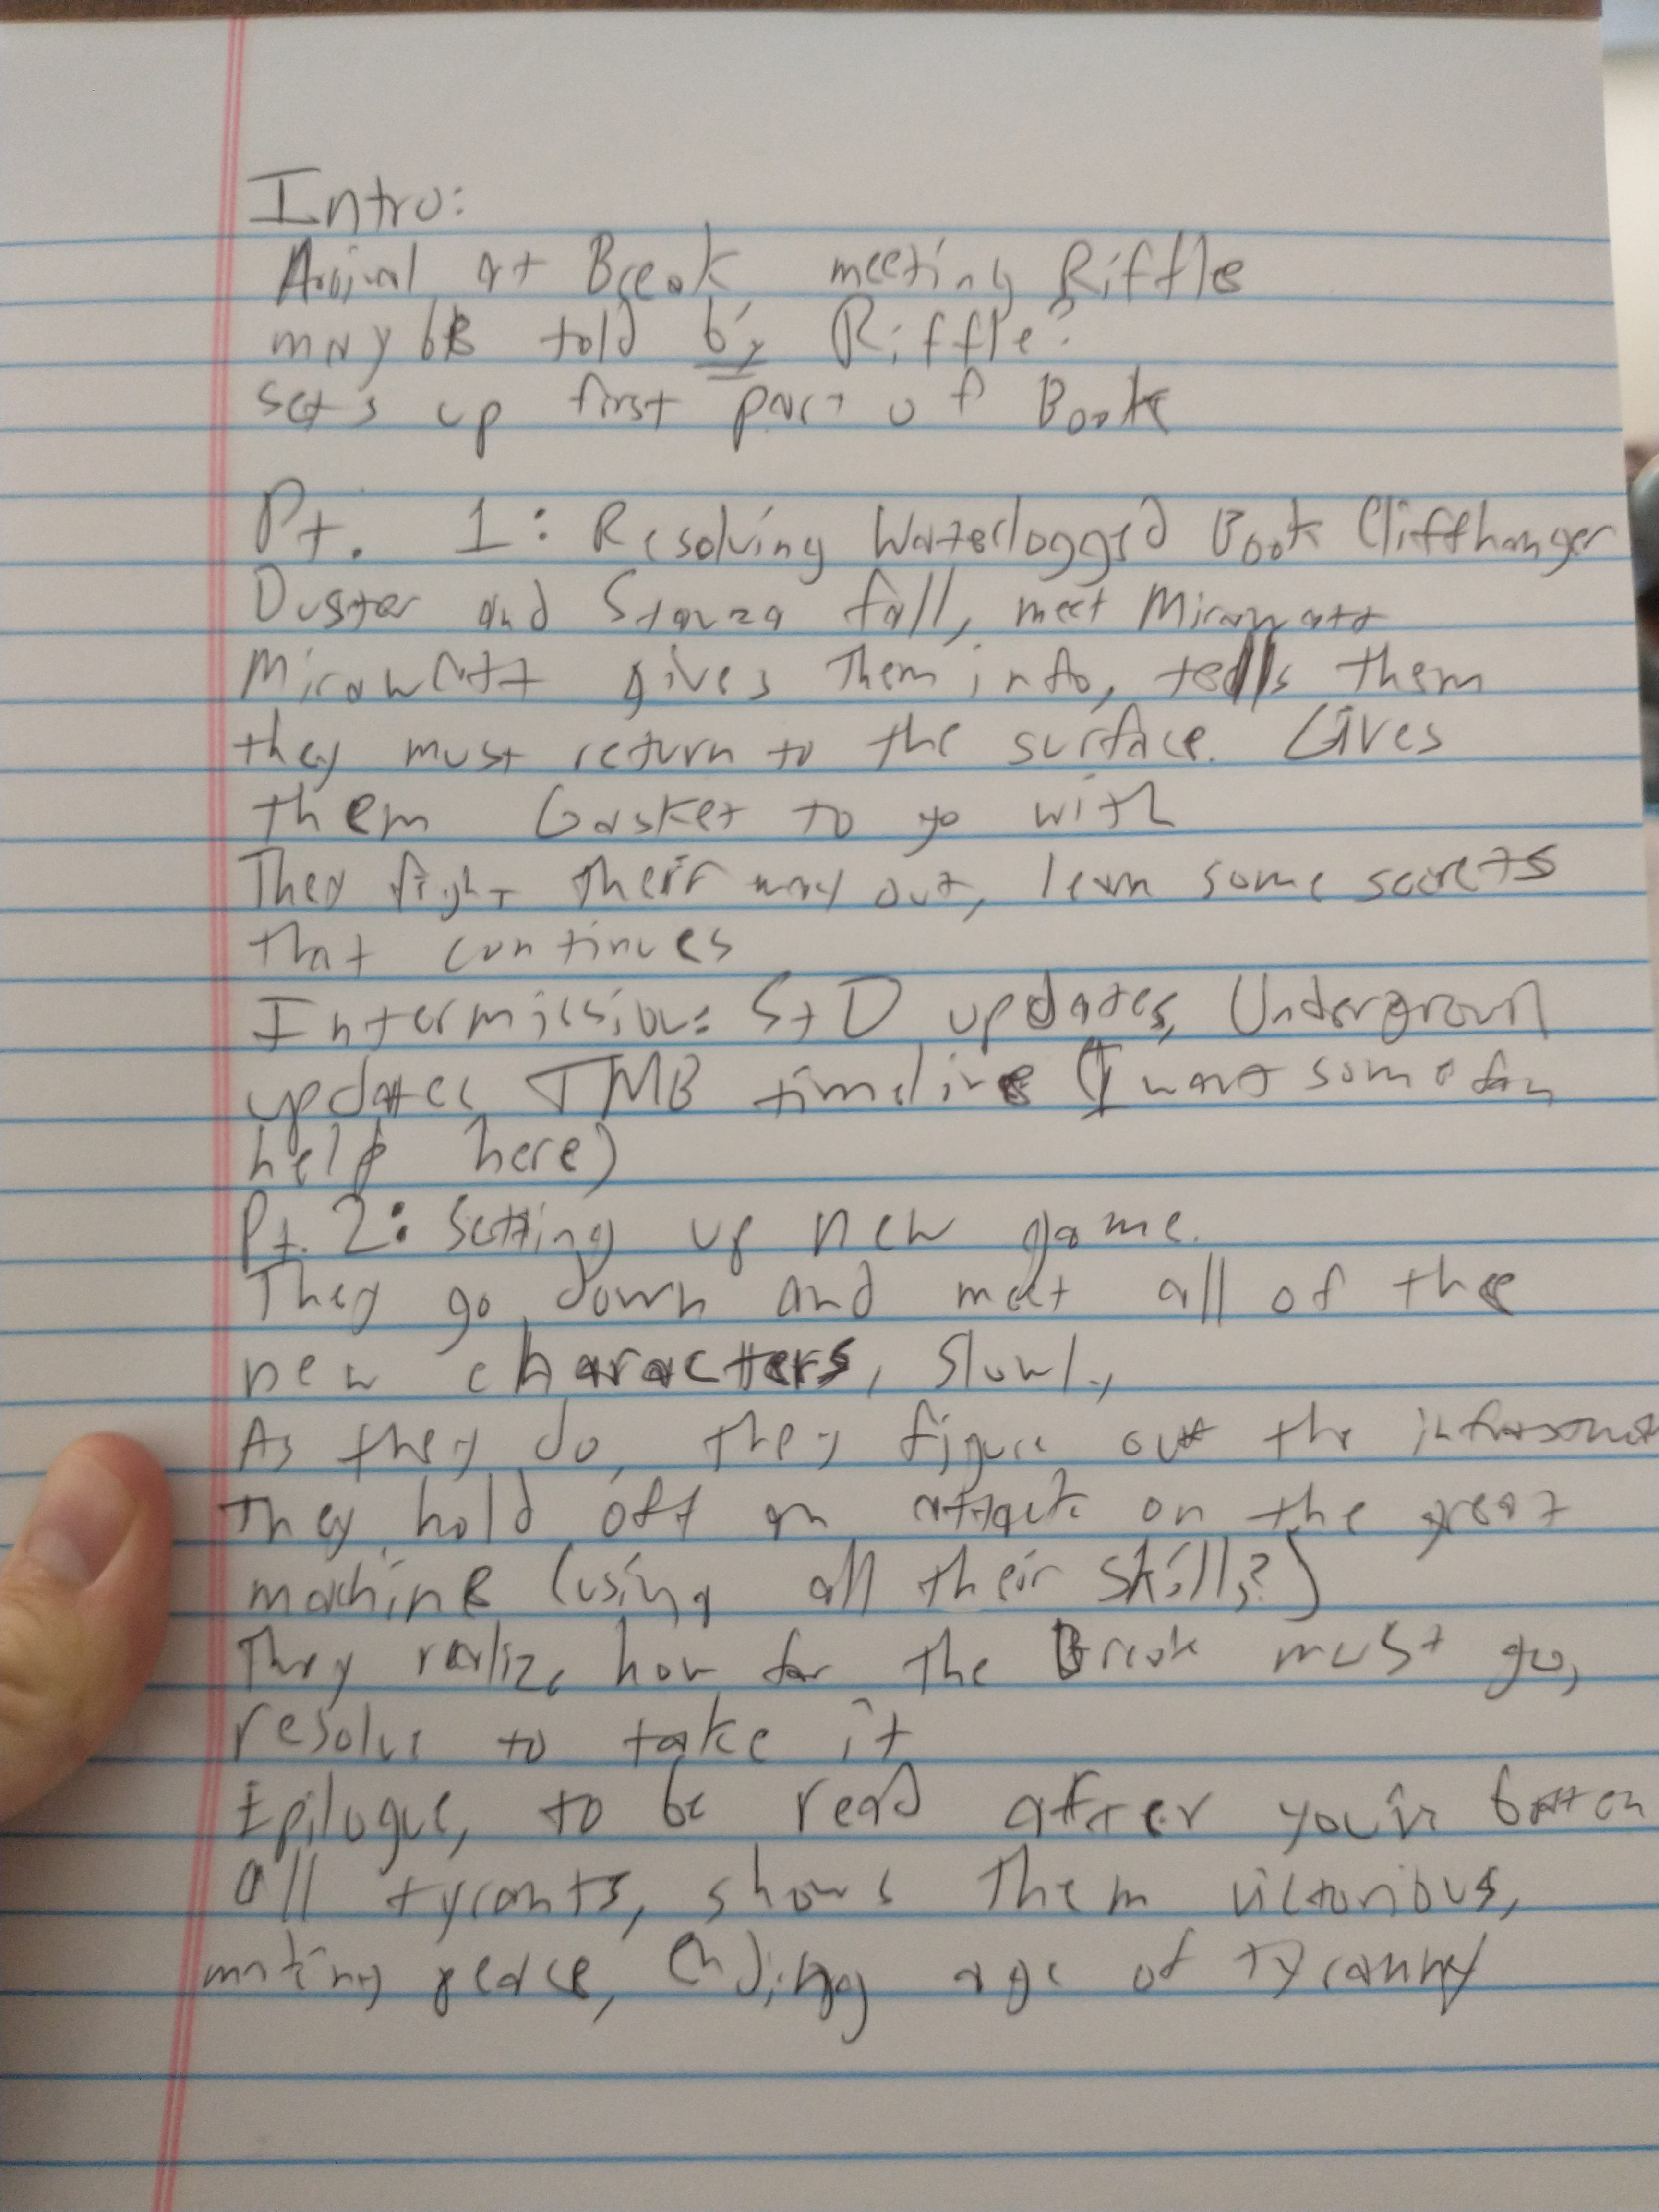 Intro:
Arrival at Break meeting Riffle
maybe told by Riffle?
sets up first part of Book
Pt. 1: Resolving Waterlogged Book Cliffhanger
Duster and Stanza fall, meet Mirawatt
Mirawatt gives them info, tells them
they must return to the surface. Gives
them Gasket to go with
They fight their way out, learn some secrets
that continues
Intermission: S+D updates, Undergroun
updates TMB timeline (I want some fan
help here)
Pt. 2: Setting up new game.
They go down and meet all of the
new characters, slowly
As they do, they figure out the
They hold off an attack on the great
machine (using all their skills?)
They realize how far the Break must go,
resolve to take it
Epilogue, to be read after you've beaten
all tyrants, shows them victorious,
making peace, ending age of tyranny